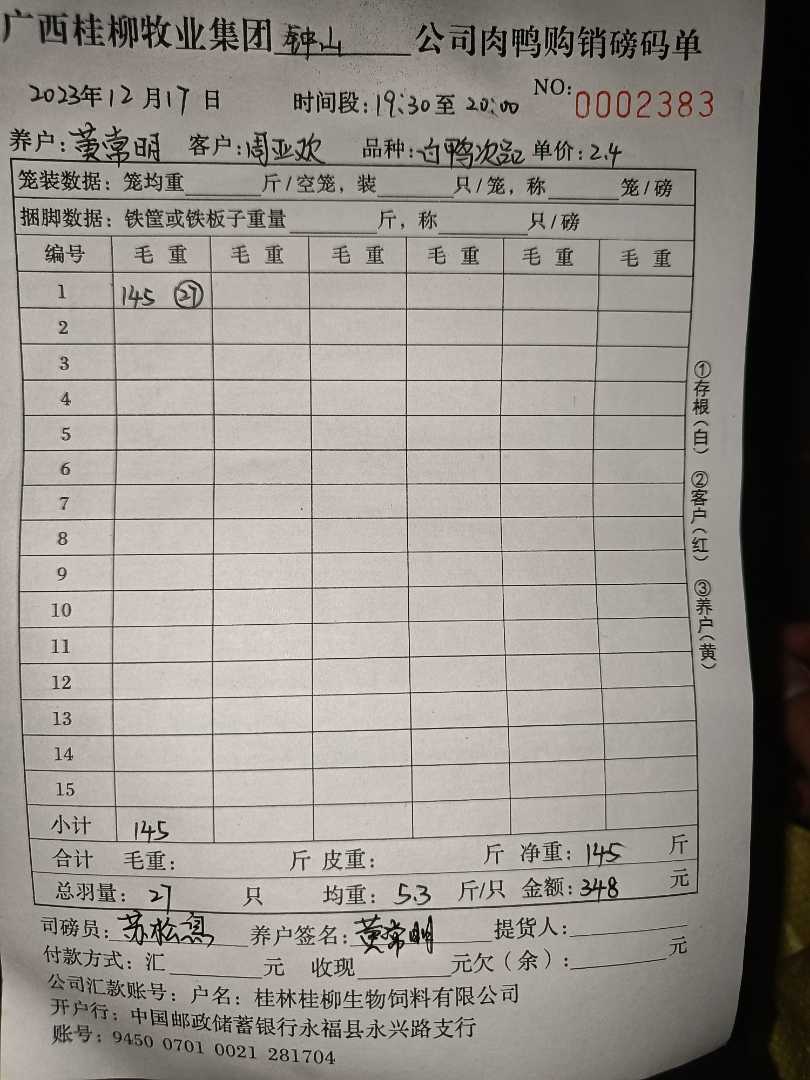 广西桂柳牧业集团 钟山 公司肉鸭购销磅码单
2023年12月17日 时间段:19:30至20:00 NO:0002383
养户:黄常明 客户:周亚欢 品种:白鸭次品 单价:2.4
笼装数据:笼均重 斤/空笼,装 只/笼,称 笼/磅
捆脚数据:铁筐或铁板子重量 斤,称 只/磅
编号 毛重 毛重 毛重 毛重 毛重 毛重
1 145 27
2
3
4
5
6
7
8
9
10
11
12
13
14
15
小计 145
合计 毛重: 斤 皮重: 斤 净重:145 斤
总羽量:27 只 均重:5.3 斤/只 金额:348 元
司磅员:苏松 养户签名:黄常明 提货人:
付款方式:汇 元 收现 元欠(余): 元
公司汇款账号:户名:桂林桂柳生物饲料有限公司
开户行:中国邮政储蓄银行永福县永兴路支行
账号:9450 0701 0021 281704
①存根(白) ②客户(红) ③养户(黄)